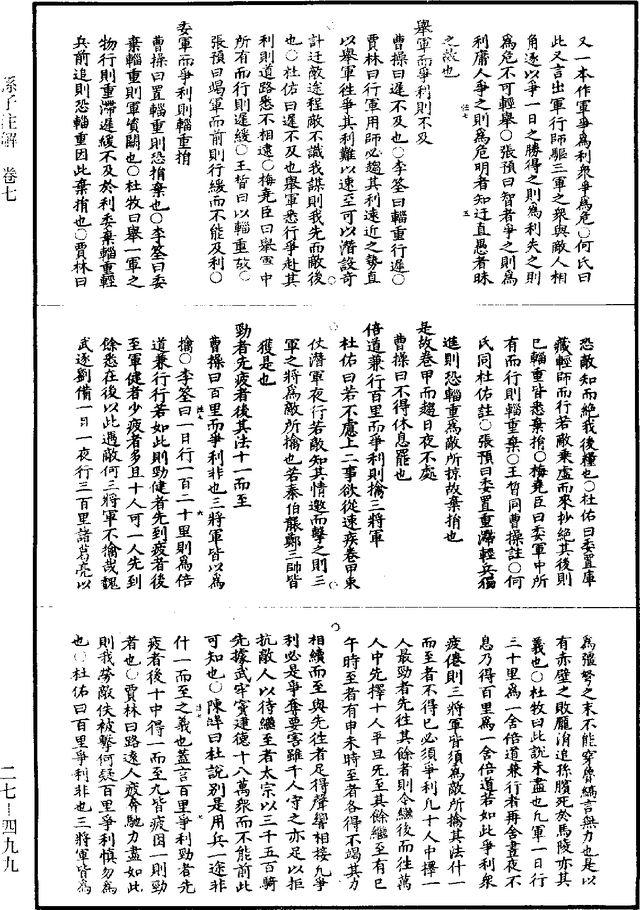 又一本作軍爭為利衆爭為危〇何氏曰
此又言出軍行師驅三軍之衆與敵人相
角逐以爭一日之勝得之則為利失之則
為危不可輕舉〇張預曰智者爭之則為
利庸人爭之則為危明者知迂直愚者昧
之故也
舉軍而爭利則不及
曹操曰遲不及也〇李筌曰輜重行遲〇
賈林曰行軍用師必趨其利遠近之勢直
以舉軍往爭其利難以速至可以潛設奇
計迂敵途程敵不識我謀則我先而敵後
也〇杜佑曰遲不及也舉軍悉行爭赴其
利則道路悉不相逮〇梅堯臣曰舉軍中
所有而行則遲緩〇王晳曰以輜重故〇
張預曰竭軍而前則行緩而不能及利〇
委軍而爭利則輜重捐
曹操曰置輜重則恐捐棄也〇李筌曰委
棄輜重則軍資闕也〇杜牧曰舉一軍之
物行則重滯遲緩不及於利委棄輜重輕
兵前追則恐輜重因此棄捐也〇賈林曰
恐敵知而絕我後糧也〇杜佑曰委置庫
藏輕師而行若敵乘虛而來抄絕其後則
已輜重皆悉棄捐〇梅堯臣曰委軍中所
有而行則輜重棄〇王晳同曹操註〇何
氏同杜佑註〇張預曰委置重滯輕兵獨
進則恐輜重為敵所掠故棄捐也
是故卷甲而趨日夜不處
曹操曰不得休息罷也
倍道兼行百里而爭利則擒三將軍
杜佑曰若不慮上二事欲從速疾卷甲束
仗潛軍夜行若敵知其情邀而擊之則三
軍之將為敵所擒也若秦伯襲鄭三帥皆
獲是也
勁者先疲者後其法十一而至
曹操曰百里而爭利非也三將軍皆以為
擒〇李筌曰一日行一百二十里則為倍
道兼行行若如此則勁健者先到疲者後
至軍健者少疲者多且十人可一人先到
餘悉在後以此遇敵何三將軍不擒哉魏
武逐劉備一日一夜行三百里諸葛亮以
為彊弩之末不能穿魯縞言無力也是以
有赤壁之敗龐涓追孫臏死於馬陵亦其
義也〇杜牧曰此說未盡也凡軍一日行
三十里為一舍倍道兼行者再舍晝夜不
息乃得百里為一舍倍道若如此爭利衆
疲倦則三將軍皆須為敵所擒其法什一
而至者不得已必須爭利凡十人中擇一
人最勁者先往其餘者則令繼後而往萬
人中先擇十人平旦先至其餘繼至有巳
午時至者有申未時至者各得不竭其力
相續而至與先往者足得聲響相接凡爭
利必是爭奪要害雖千人守之亦足以拒
抗敵人以待繼至者太宗以三千五百騎
先據武牢竇建德十八萬衆而不能前此
可知也〇陳皥曰杜說別是用兵一途非
什一而至之義也蓋言百里爭利勁者先
疲者後十中得一而至九皆疲困一則勁
者也〇賈林曰路遠人疲奔馳力盡如此
則我勞敵佚被擊何疑百里爭利慎勿為
也〇杜佑曰百里爭利非也三將軍皆為
孫子注解 卷七
二七—四九九